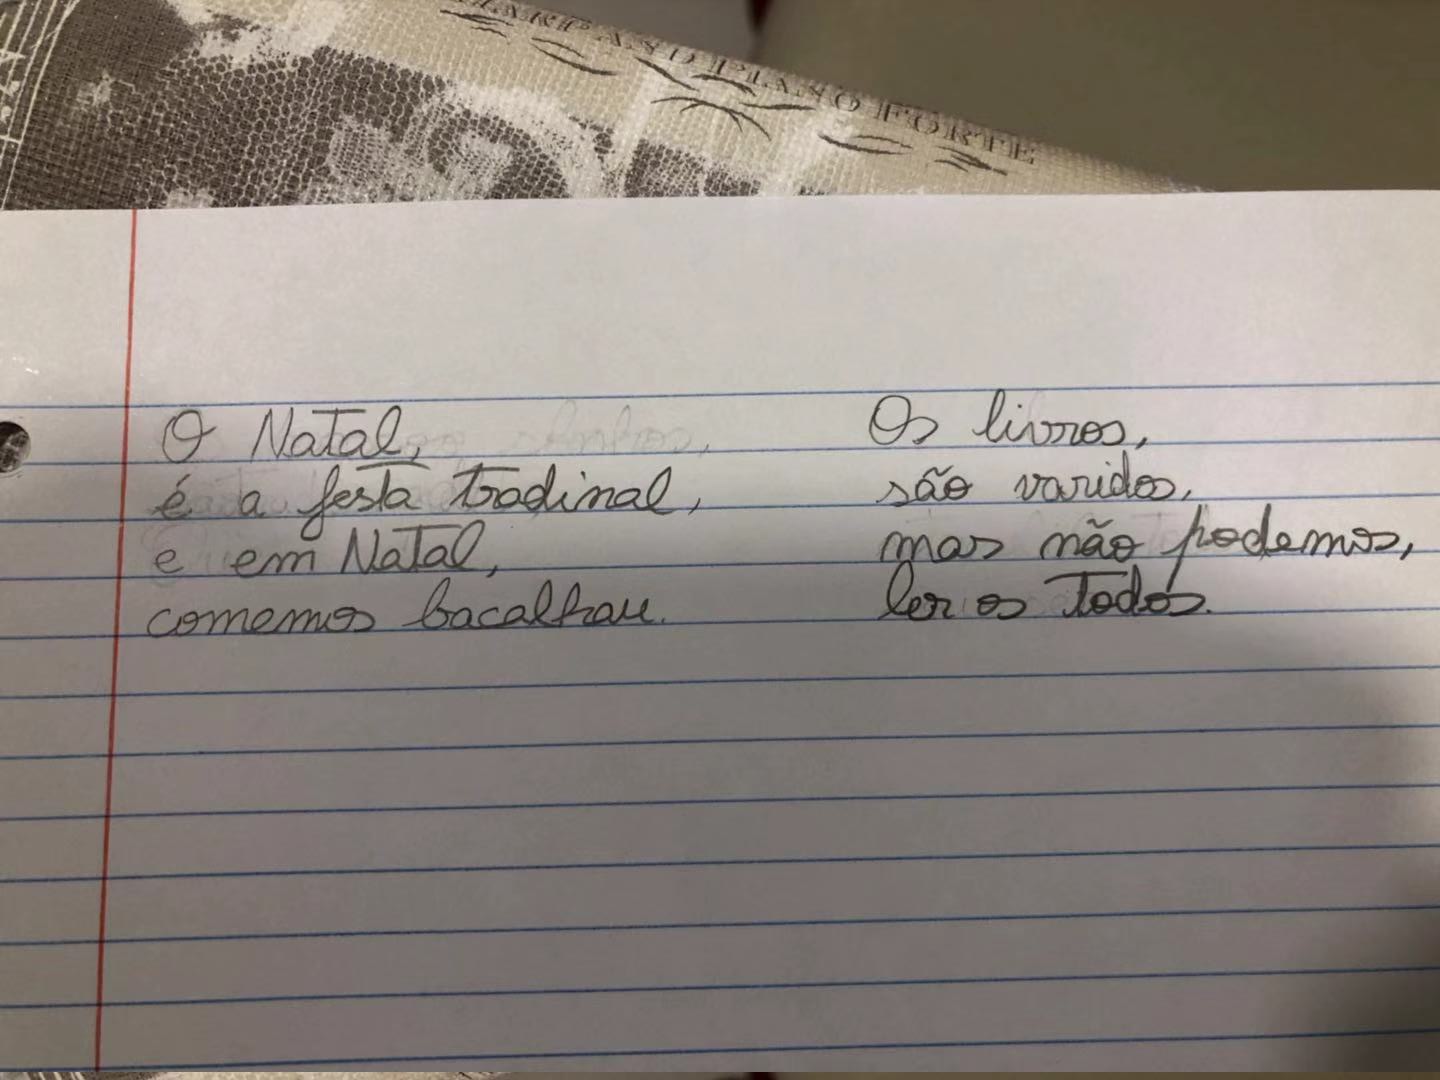 HARP AND PIANO FORTE
O Natal,
é a festa tradinal,
e em Natal,
comemos bacalhau.
Os livros,
são varidos,
mas não podemos,
ler os todos.